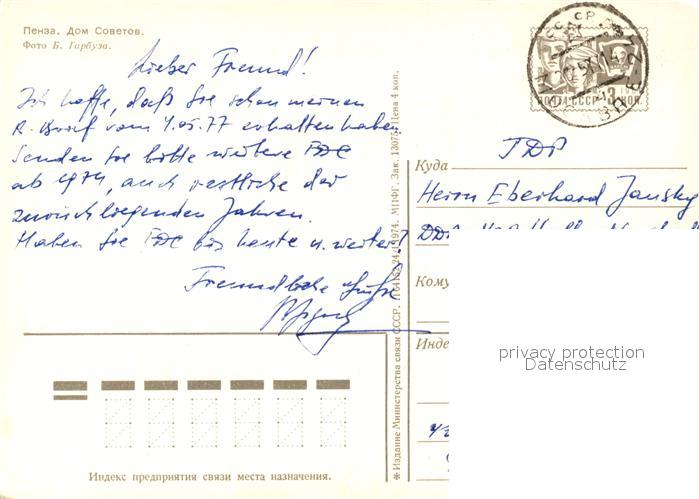 Пенза. Дом Советов.
Фото Б. Гарбуза.
Lieber Freund!
Ich hoffe, daß Sie schon meinen
R. Brief vom 4.05.77 erhalten haben.
Senden Sie bitte weitere FDC
ab 1974, auch restliche der
zurückliegenden Jahren.
Haben Sie FDC bis heute u. weiter?
Freundliche Grüße
* Издание Министерства связи СССР. 24/I 1974. МПФГ. Зак. 13075. Цена 4 коп.
ПОЧТА СССР 3 КОП.
Куда ГДР
Herrn Eberhard Jansky
DDR
Кому
Инде
privacy protection
Datenschutz
Индекс предприятия связи места назначения.